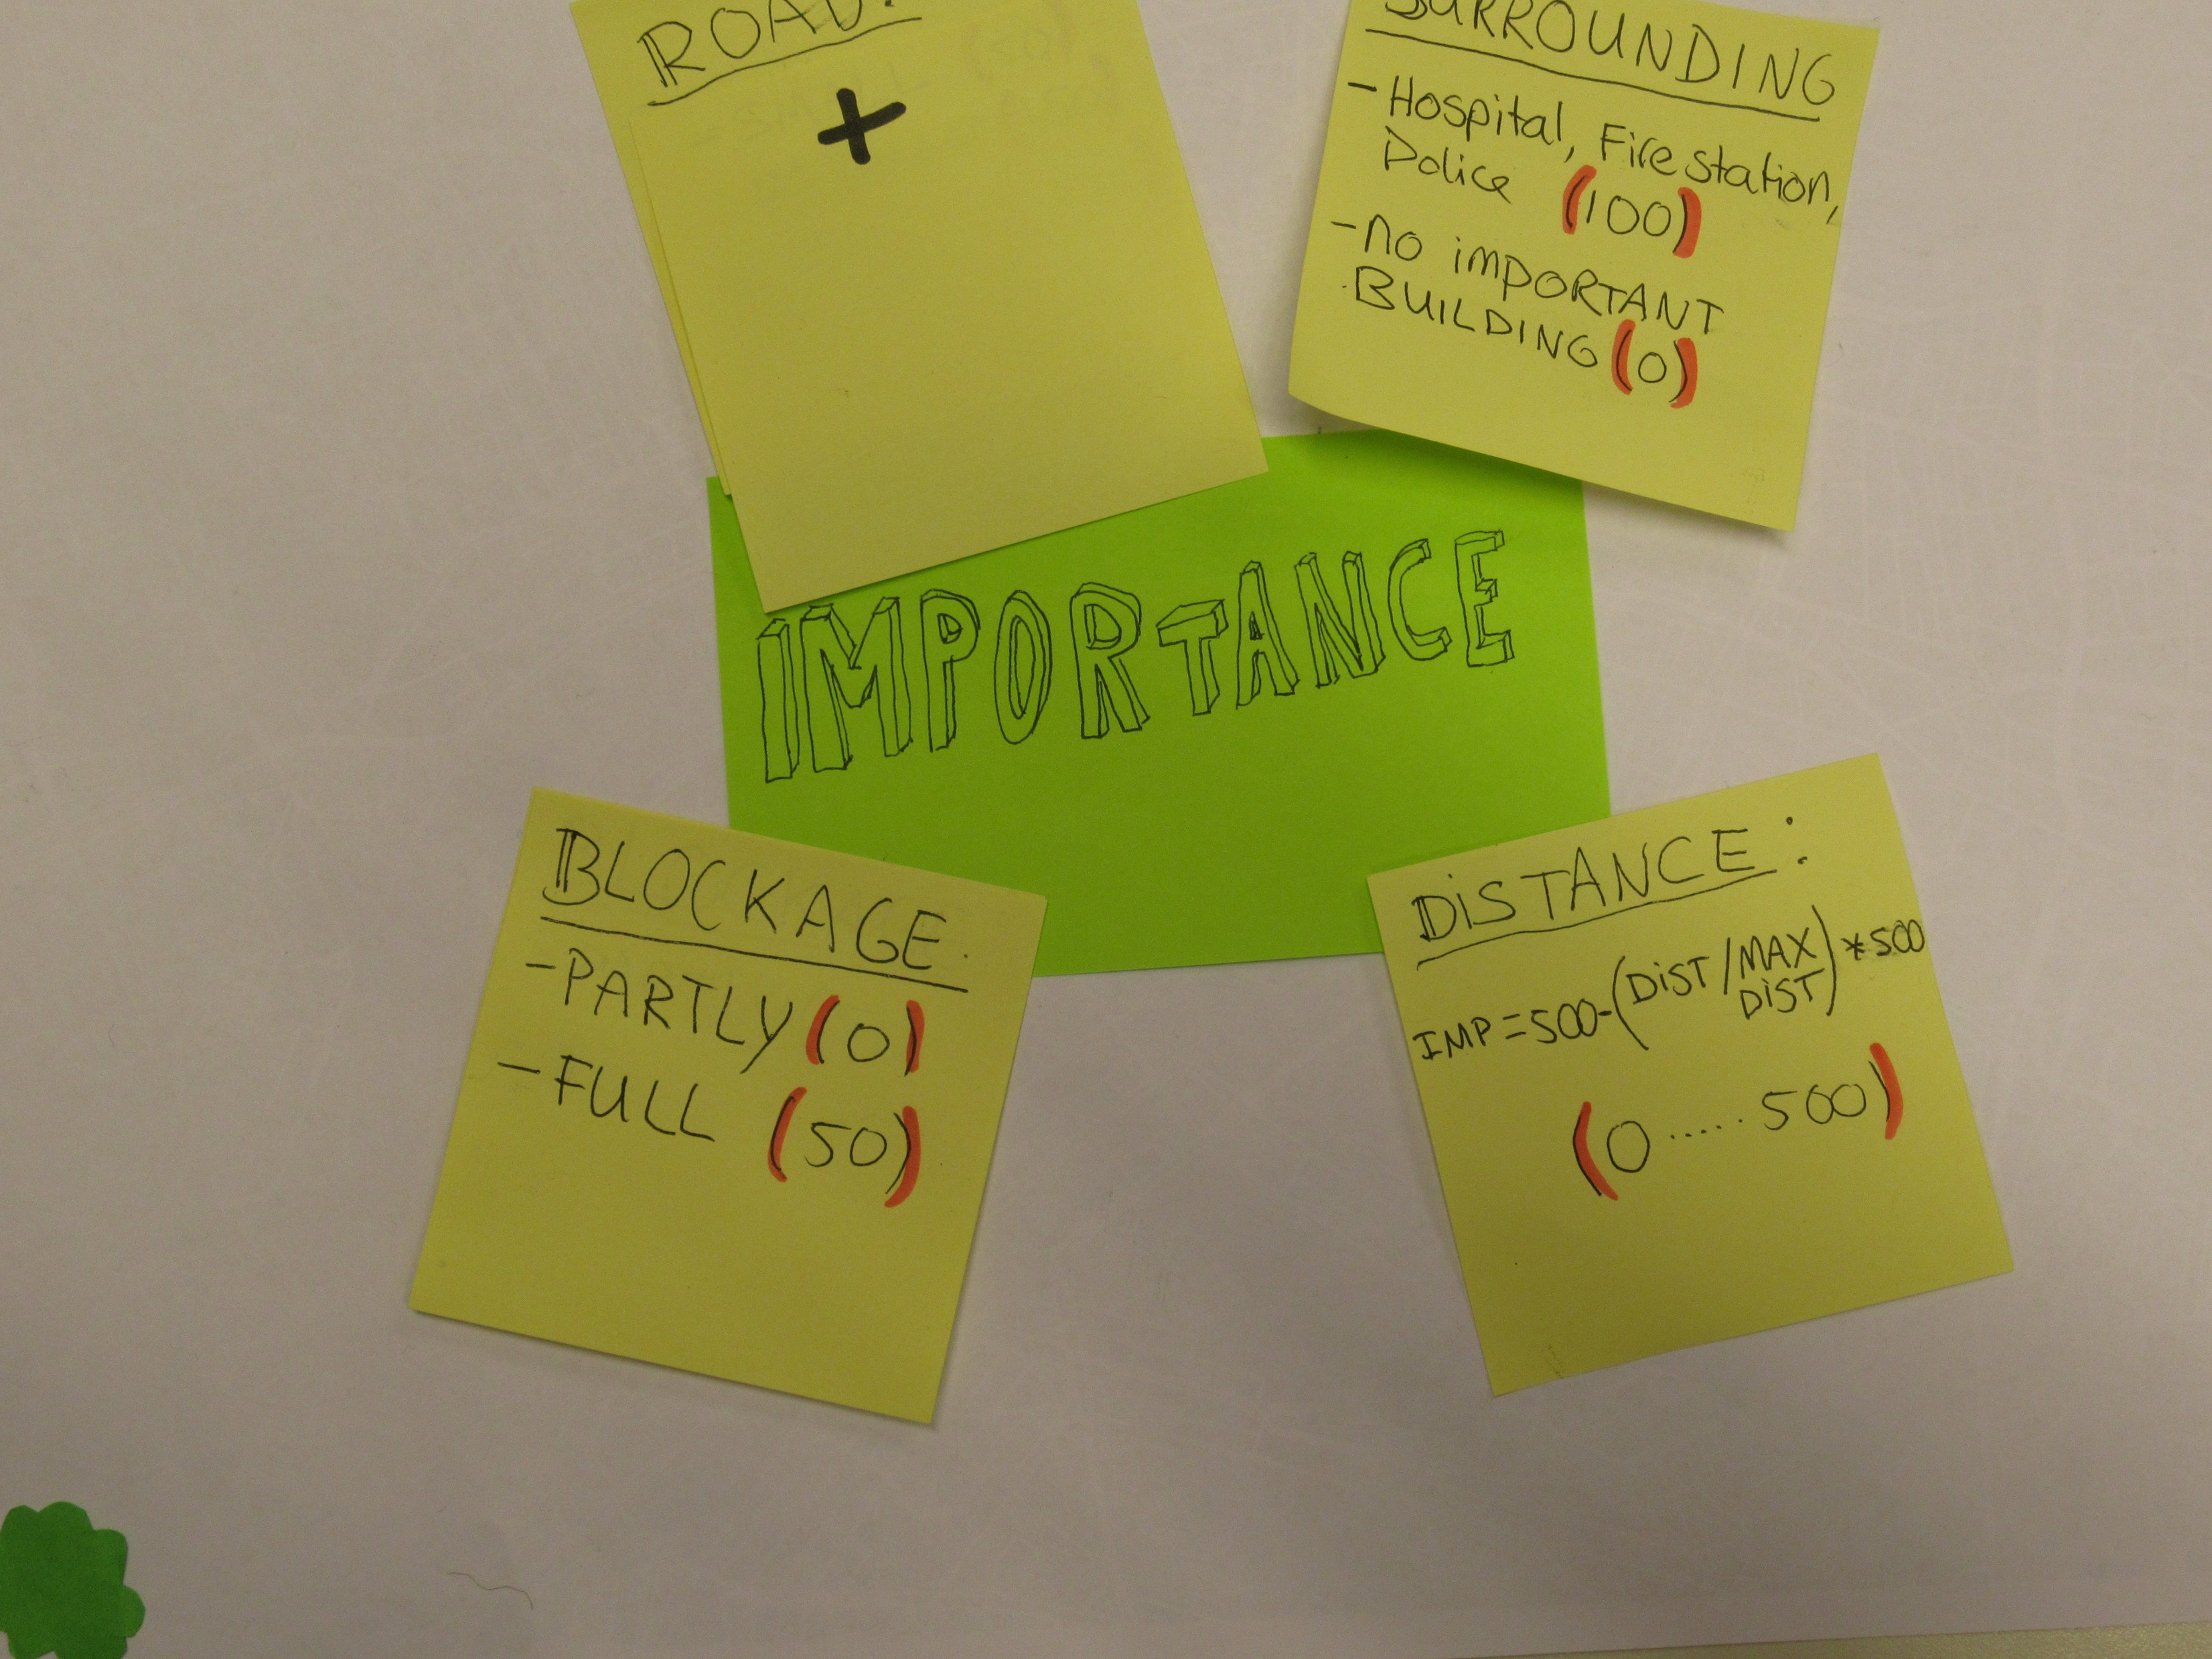 ROAD:
+
SURROUNDING
- Hospital, Fire station,
Police (100)
- no imPORTANT
BUILDING (0)
IMPORTANCE
BLOCKAGE.
- PARTLY (0)
- FULL (50)
DiSTANCE:
IMP = 500 - (DiST / MAX DiST) * 500
(0 ..... 500)